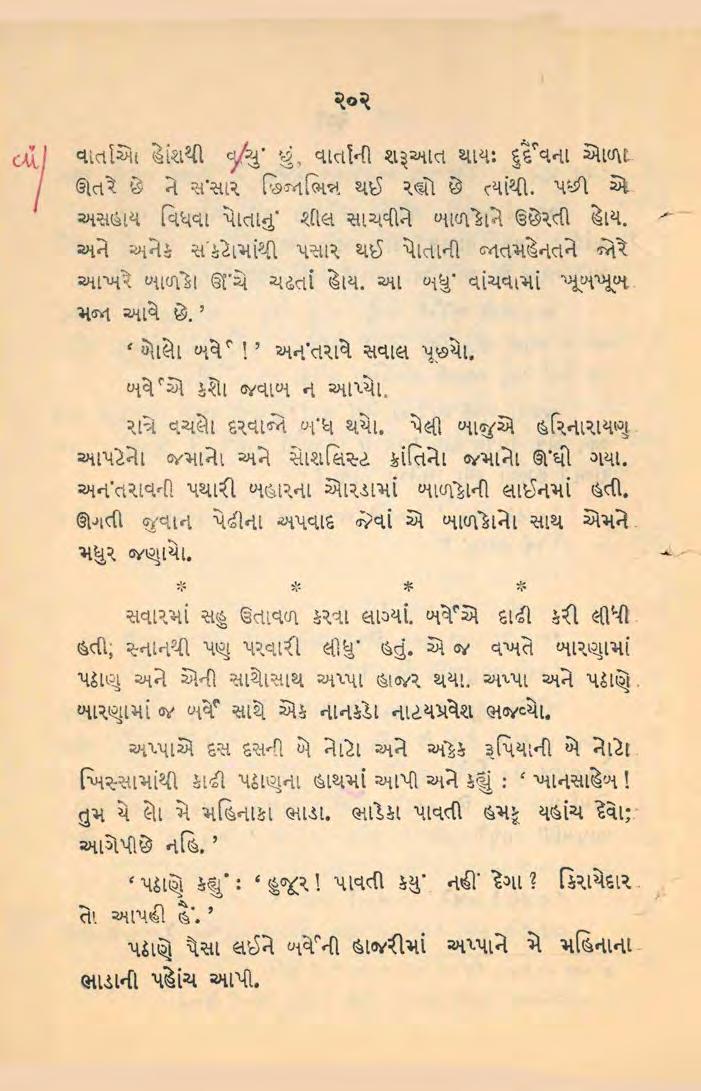 ૨૦૨
વાં
વાર્તાઓ હોંશથી વાચું છું, વાર્તાની શરૂઆત થાય: દુર્દૈવના ઓળા
ઊતરે છે ને સંસાર છિન્નભિન્ન થઈ રહ્યો છે ત્યાંથી. પછી એ
અસહાય વિધવા પોતાનું શીલ સાચવીને બાળકોને ઉછેરતી હોય.
અને અનેક સંકટોમાંથી પસાર થઈ પોતાની જાતમહેનતને જોરે
આખરે બાળકો ઊંચે ચઢતાં હોય. આ બધું વાંચવામાં ખૂબખૂબ
મજા આવે છે.’
‘ બોલો બર્વે !’ અનંતરાવે સવાલ પૂછયો.
બર્વેએ કશો જવાબ ન આપ્યો.
રાત્રે વચલો દરવાજો બંધ થયો. પેલી બાજુએ હરિનારાયણ
આપટેનો જમાનો અને સોશલિસ્ટ ક્રાંતિનો જમાનો ઊંઘી ગયા.
અનંતરાવની પથારી બહારના ઓરડામાં બાળકોની લાઈનમાં હતી.
ઊગતી જુવાન પેઢીના અપવાદ જેવાં એ બાળકોનો સાથ એમને
મધુર જણાયો.
* * * *
સવારમાં સહુ ઉતાવળ કરવા લાગ્યાં. બર્વેએ દાઢી કરી લીધી
હતી; સ્નાનથી પણ પરવારી લીધું હતું. એ જ વખતે બારણામાં
પઠાણ અને એની સાથોસાથ અપ્પા હાજર થયા. અપ્પા અને પઠાણે
બારણામાં જ બર્વે સાથે એક નાનકડો નાટયપ્રવેશ ભજવ્યો.
અપ્પાએ દસ દસની બે નોટો અને અકેક રૂપિયાની બે નોટો
ખિસ્સામાંથી કાઢી પઠાણના હાથમાં આપી અને કહ્યું : ‘ ખાનસાહેબ !
તુમ યે લો મે મહિનાકા ભાડા. ભાડેકા પાવતી હમકૂ યહાંચ દેવો;
આગેપીછે નહિ.’
‘પઠાણે કહ્યું : ‘ હુજૂર ! પાવતી કયું નહીં દેગા ? કિરાયેદાર
તો આપહી હૈં.’
પઠાણે પૈસા લઈને બર્વેની હાજરીમાં અપ્પાને મે મહિનાના
ભાડાની પહોંચ આપી.